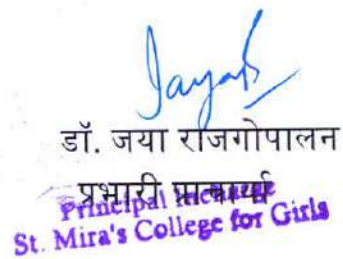 Jaya
डॉ. जया राजगोपालन
प्रभारी प्राचार्या
Principal Incharge
St. Mira's College for Girls